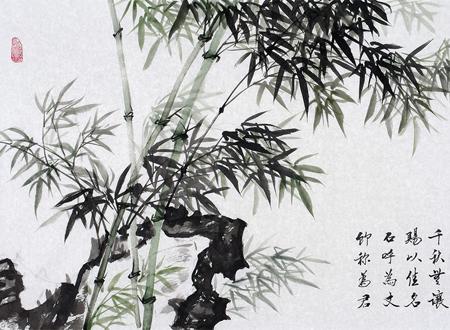 竹称為君
石呼為丈
賜以佳名
千秋無讓